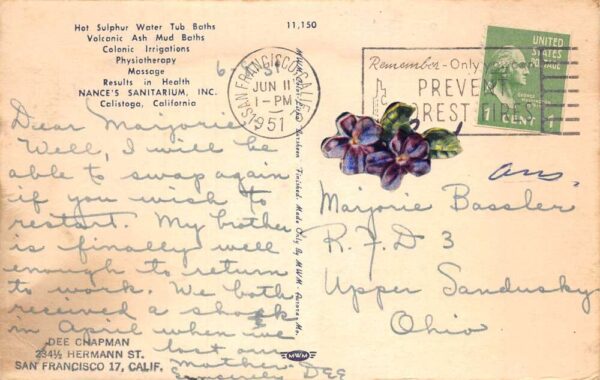 Hot Sulphur Water Tub Baths
Volcanic Ash Mud Baths
Colonic Irrigations
Physiotherapy
Massage
Results in Health
NANCE'S SANITARIUM, INC.
Calistoga, California
11,150
SAN FRANCISCO, CALIF.
JUN 11
1-PM
1951
Remember-Only you can
PREVENT
FOREST FIRES
UNITED
STATES
POSTAGE
1 CENT 1
Dear Marjorie
Well, I will be
able to swap again
if you wish to
restart. My brother
is finally well
enough to return
to work. We both
received a shock
in April when we
lost our
Mother.
Sincerely DEE
DEE CHAPMAN
234½ HERMANN ST.
SAN FRANCISCO 17, CALIF.
Finished. Made Only By MWM
MWM
ans
Marjorie Bassler
R. F. D 3
Upper Sandusky
Ohio